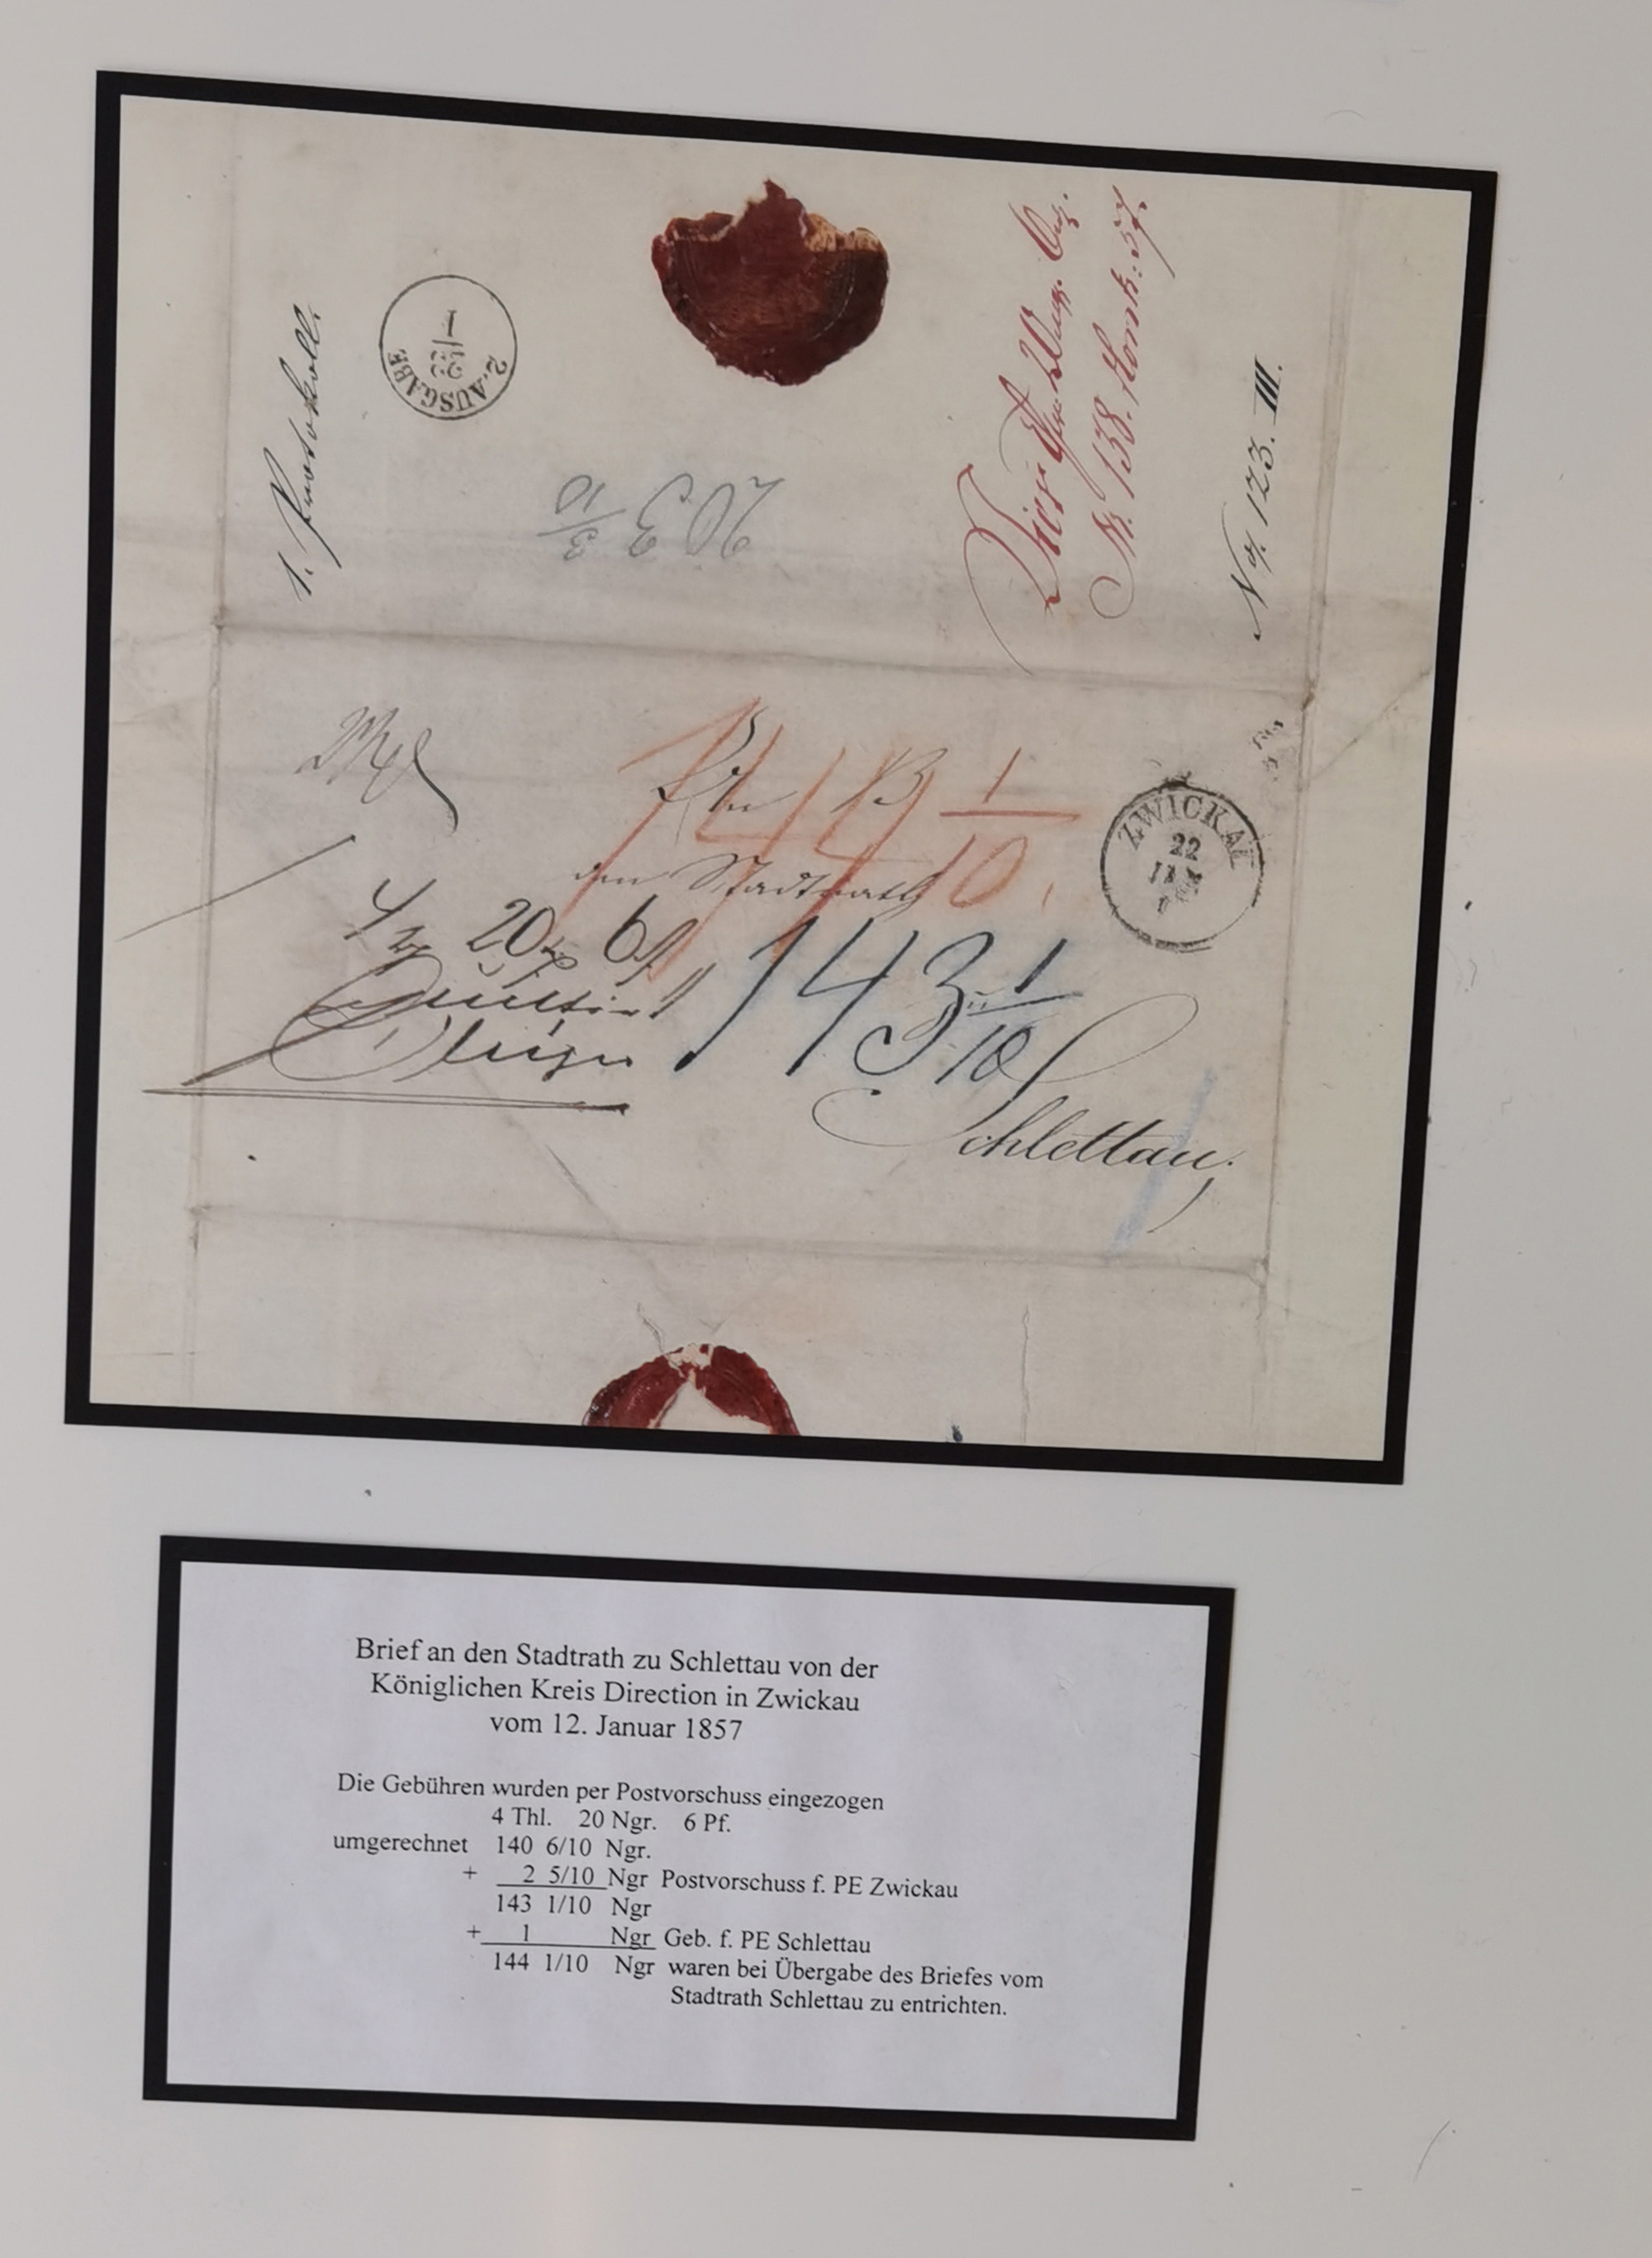 1. Protokoll.
2. AUSGABE
22
1
203 3/10
№ 138.
Nrg. 123. III.
144 1/10.
den Stadtrath
ZWICKAU
22
4 20 6
143 1/10
zu
Schlettau.
Brief an den Stadtrath zu Schlettau von der
Königlichen Kreis Direction in Zwickau
vom 12. Januar 1857
Die Gebühren wurden per Postvorschuss eingezogen
4 Thl. 20 Ngr. 6 Pf.
umgerechnet 140 6/10 Ngr.
+ 2 5/10 Ngr Postvorschuss f. PE Zwickau
143 1/10 Ngr
+ 1 Ngr Geb. f. PE Schlettau
144 1/10 Ngr waren bei Übergabe des Briefes vom
Stadtrath Schlettau zu entrichten.